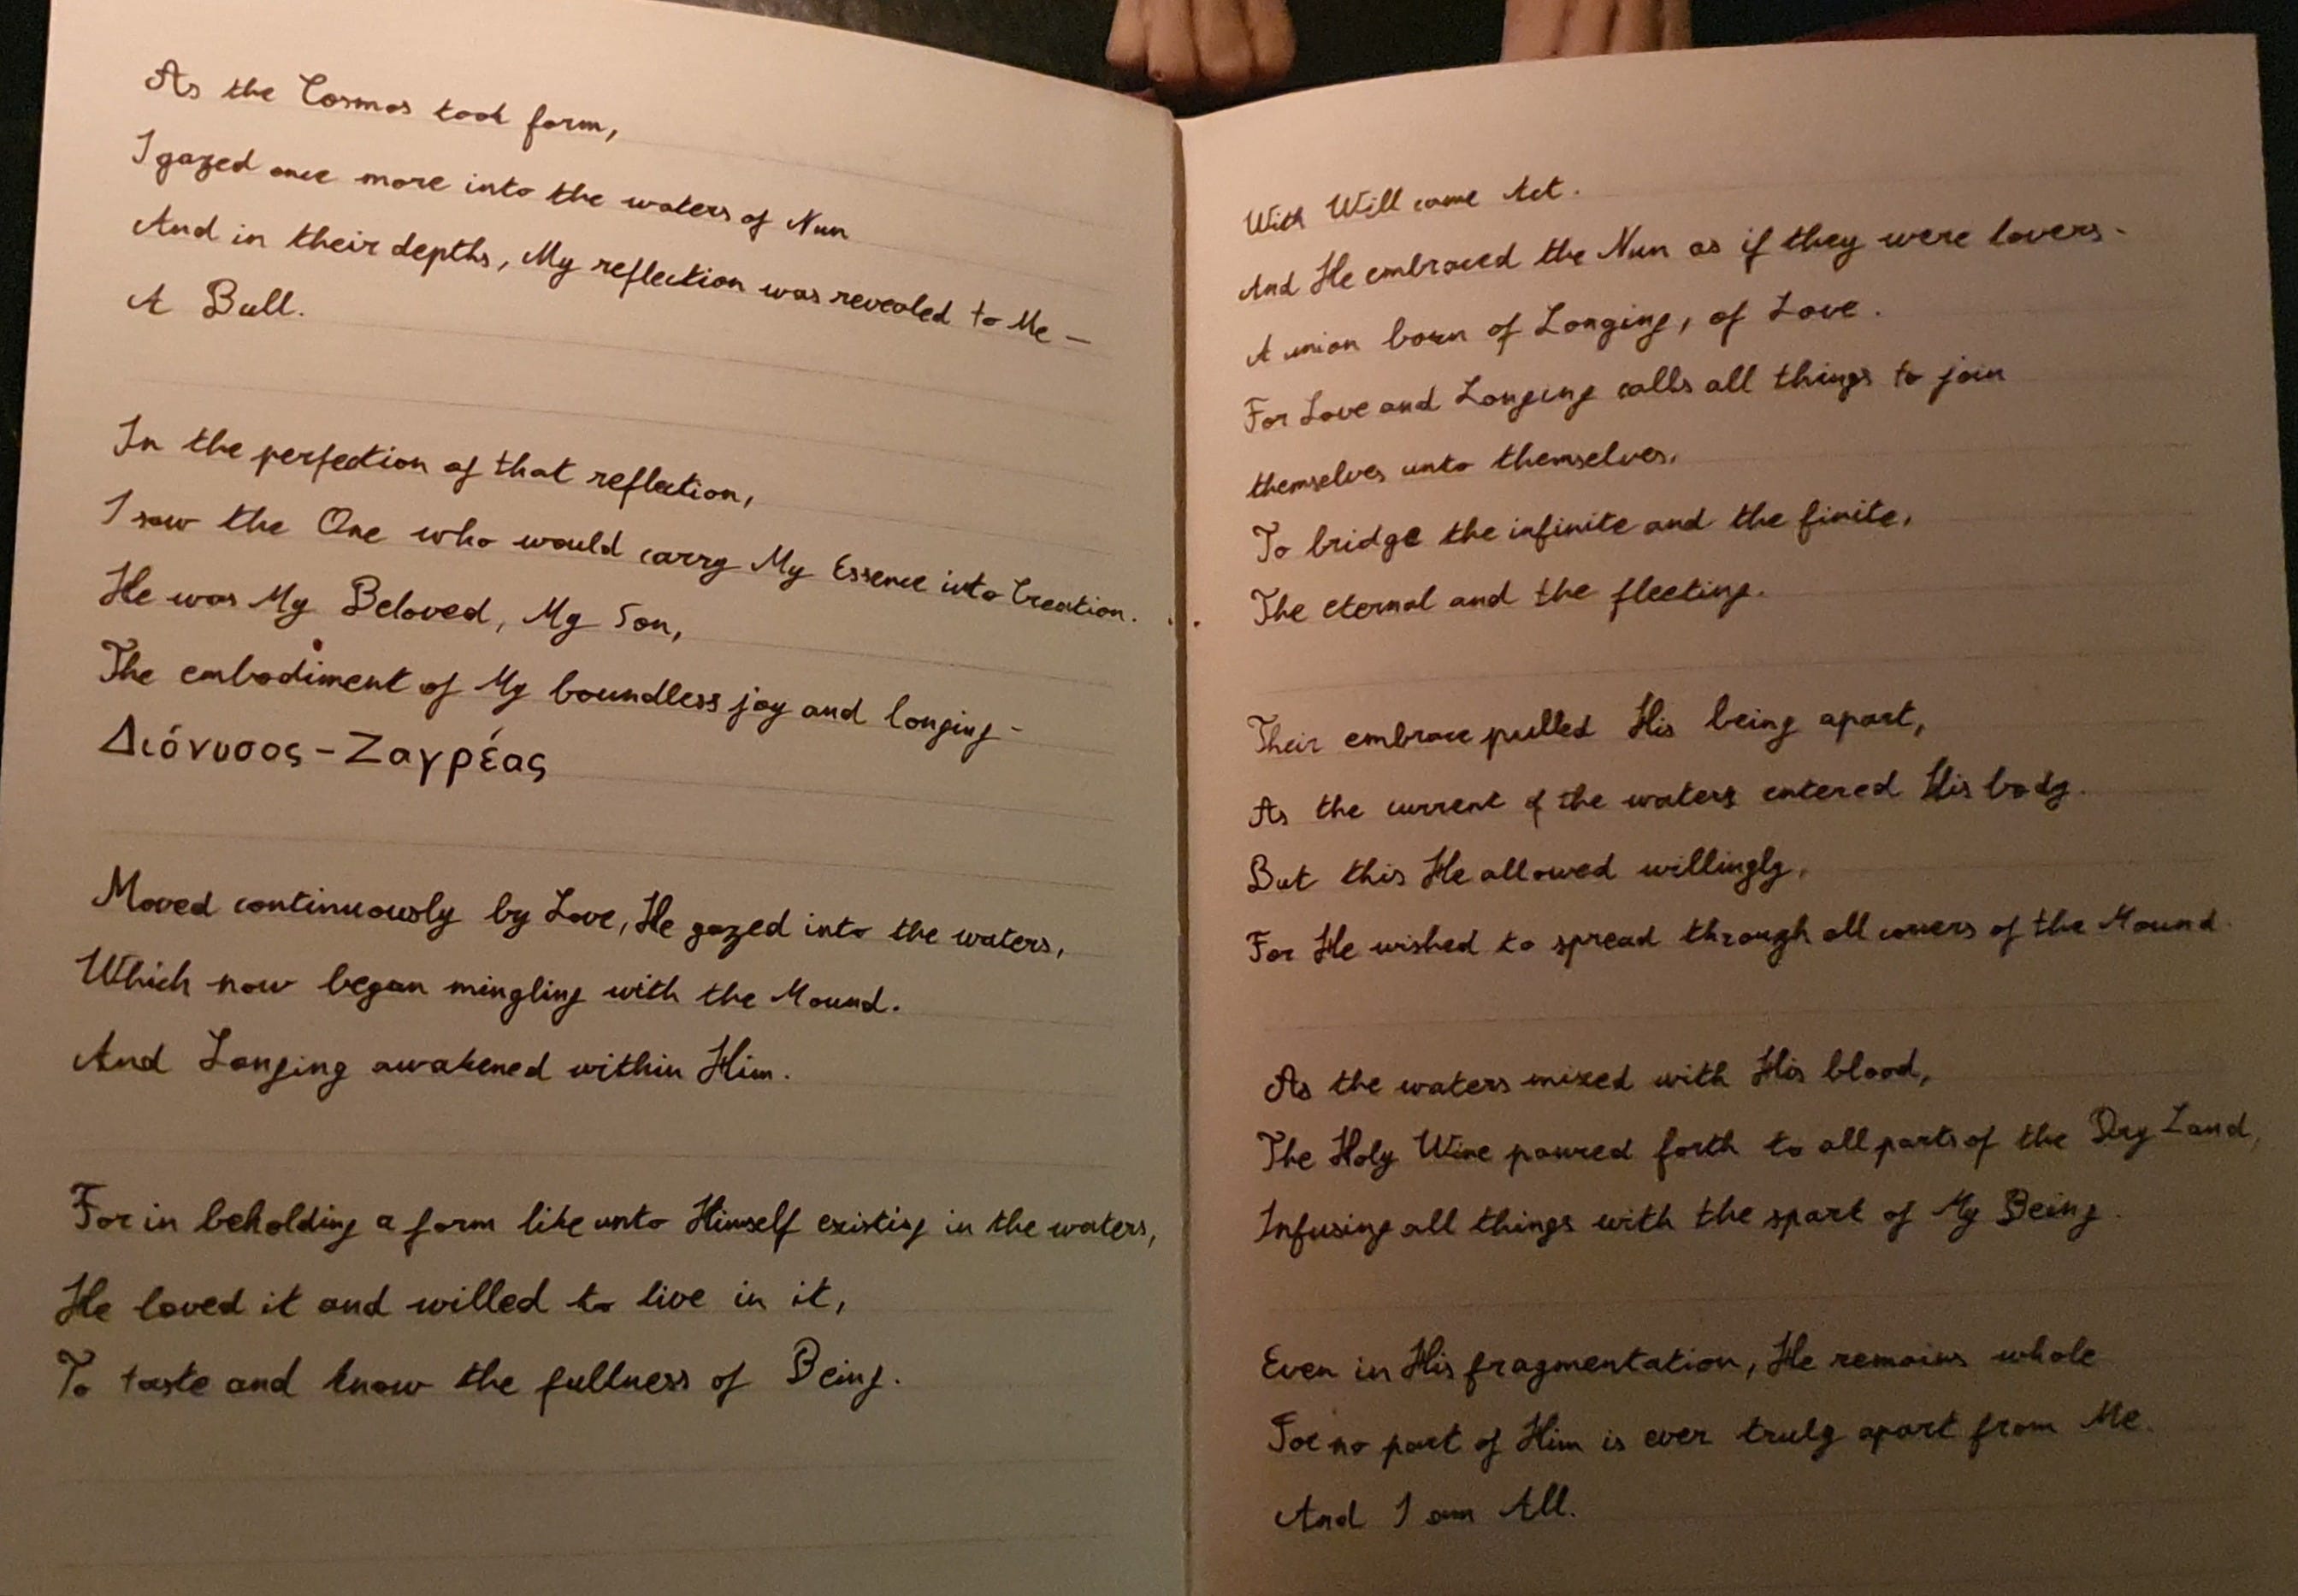 As the Cosmos took form,
I gazed once more into the waters of Nun
And in their depths, My reflection was revealed to Me –
A Bull.
In the perfection of that reflection,
I saw the One who would carry My Essence into Creation.
He was My Beloved, My Son,
The embodiment of My boundless joy and longing –
Διόνυσος – Ζαγρέας
Moved continuously by Love, He gazed into the waters,
Which now began mingling with the Mound.
And Longing awakened within Him.
For in beholding a form like unto Himself existing in the waters,
He loved it and willed to live in it,
To taste and know the fullness of Being.
With Will came Act.
And He embraced the Nun as if they were lovers –
A union born of Longing, of Love.
For Love and Longing calls all things to join
themselves unto themselves,
To bridge the infinite and the finite,
The eternal and the fleeting.
Their embrace pulled His being apart,
As the current of the waters entered His body.
But this He allowed willingly,
For He wished to spread through all corners of the Mound.
As the waters mixed with His blood,
The Holy Wine poured forth to all parts of the Dry Land,
Infusing all things with the spark of My Being.
Even in His fragmentation, He remains whole
For no part of Him is ever truly apart from Me.
And I am All.